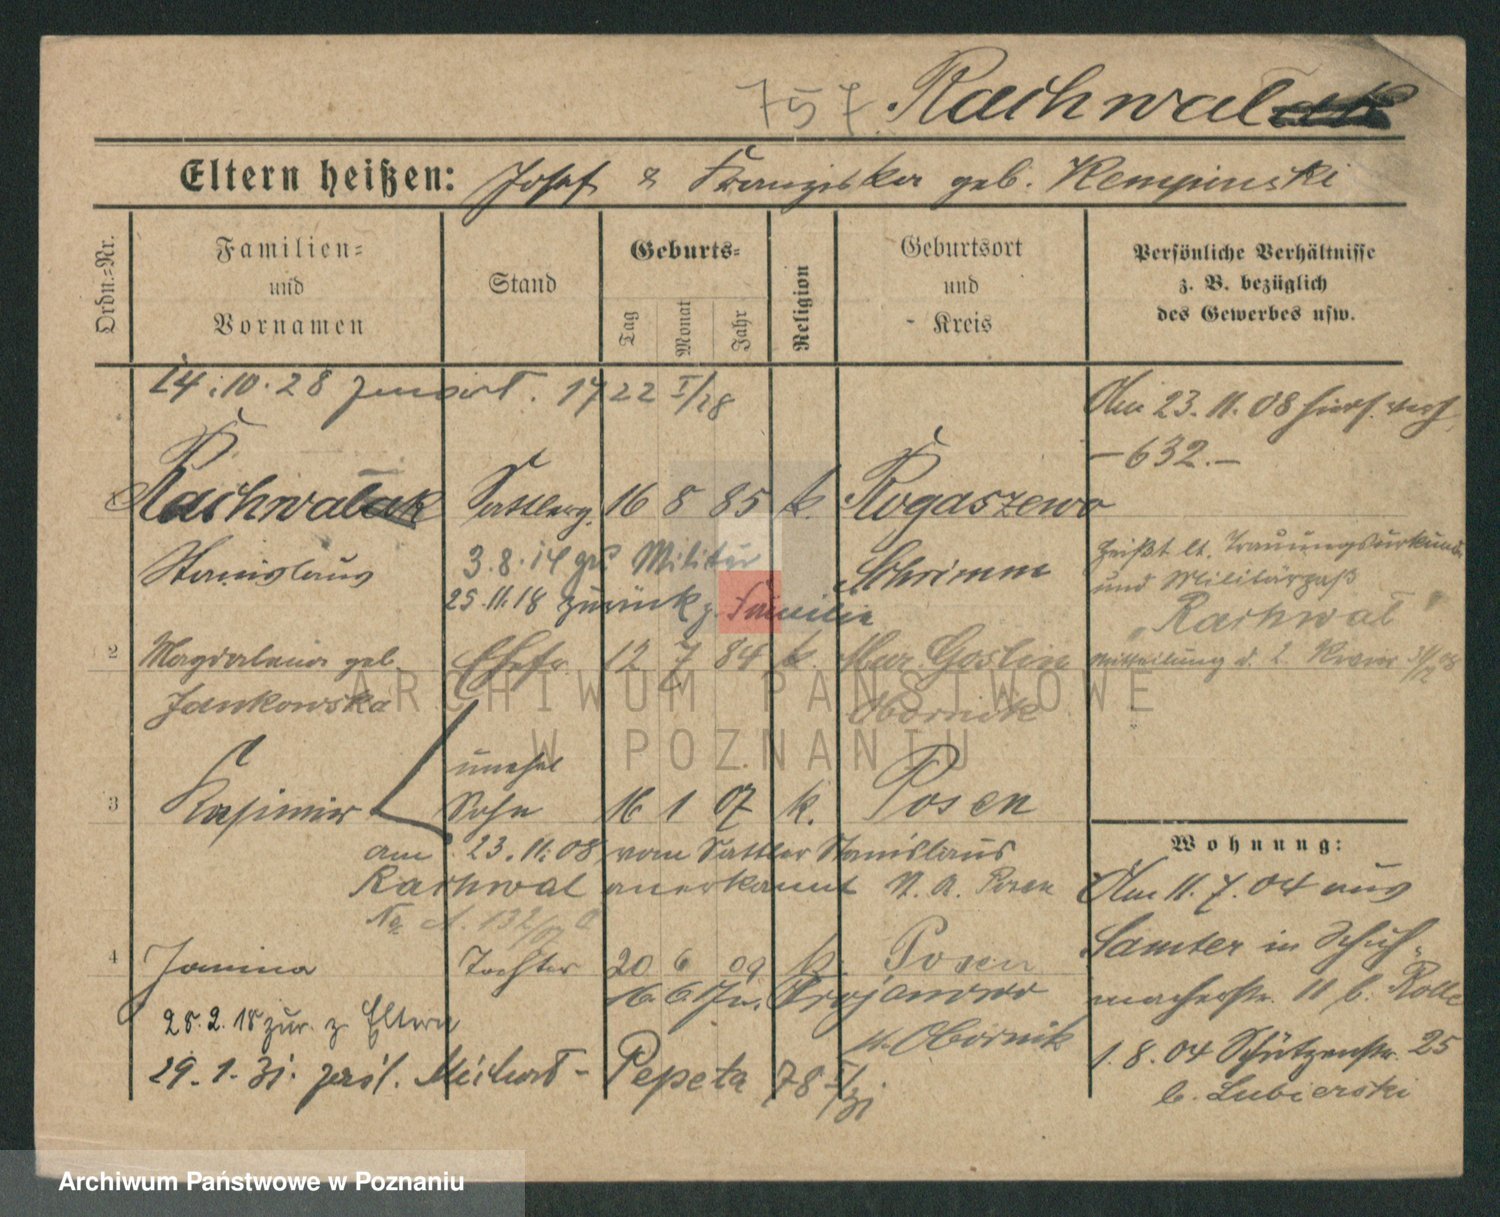 757. Rachwalak
Eltern heißen: Josef & Franziska geb. Kempinski
Ordn.=Nr.
Familien= und Vornamen
Stand
Geburts=
Tag Monat Jahr
Religion
Geburtsort und Kreis
Persönliche Verhältnisse
z. B. bezüglich
des Gewerbes usw.
14.10.28 1722 I/28
Am 23.11.08
– 632. –
Rachwalak Sattlerg. 16 8 85 k. Rogaszewo
Stanislaus 3.8.14 Militär Schrimm
25.11.18 zurück z. Familie
heißt lt. Trauungsurkunde
und Militärpaß
"Rachwal"
Mitteilung d.
2 Magdalena geb. Ehefr. 12 7 84 k. Mur. Goslin
Jankowska Obornik
unehel
3 Kasimir Sohn 16 1 07 k. Posen
am 23.11.08 vom Sattler Stanislaus
Rachwal anerkannt St. A. Posen
4 Janina Tochter 20 6 09 k. Posen
16. 6 17 Trojanowo
Kr. Obornik
25.2.18 zur. z. Eltern
29.1.31. Pepeta 78 I/31
Wohnung:
Am 11.7.04 aus
Samter in Schuh-
macherstr. 11 b.
1.8.04 Schützenstr. 25
b. Lubierski
ARCHIWUM PAŃSTWOWE
W POZNANIU
Archiwum Państwowe w Poznaniu